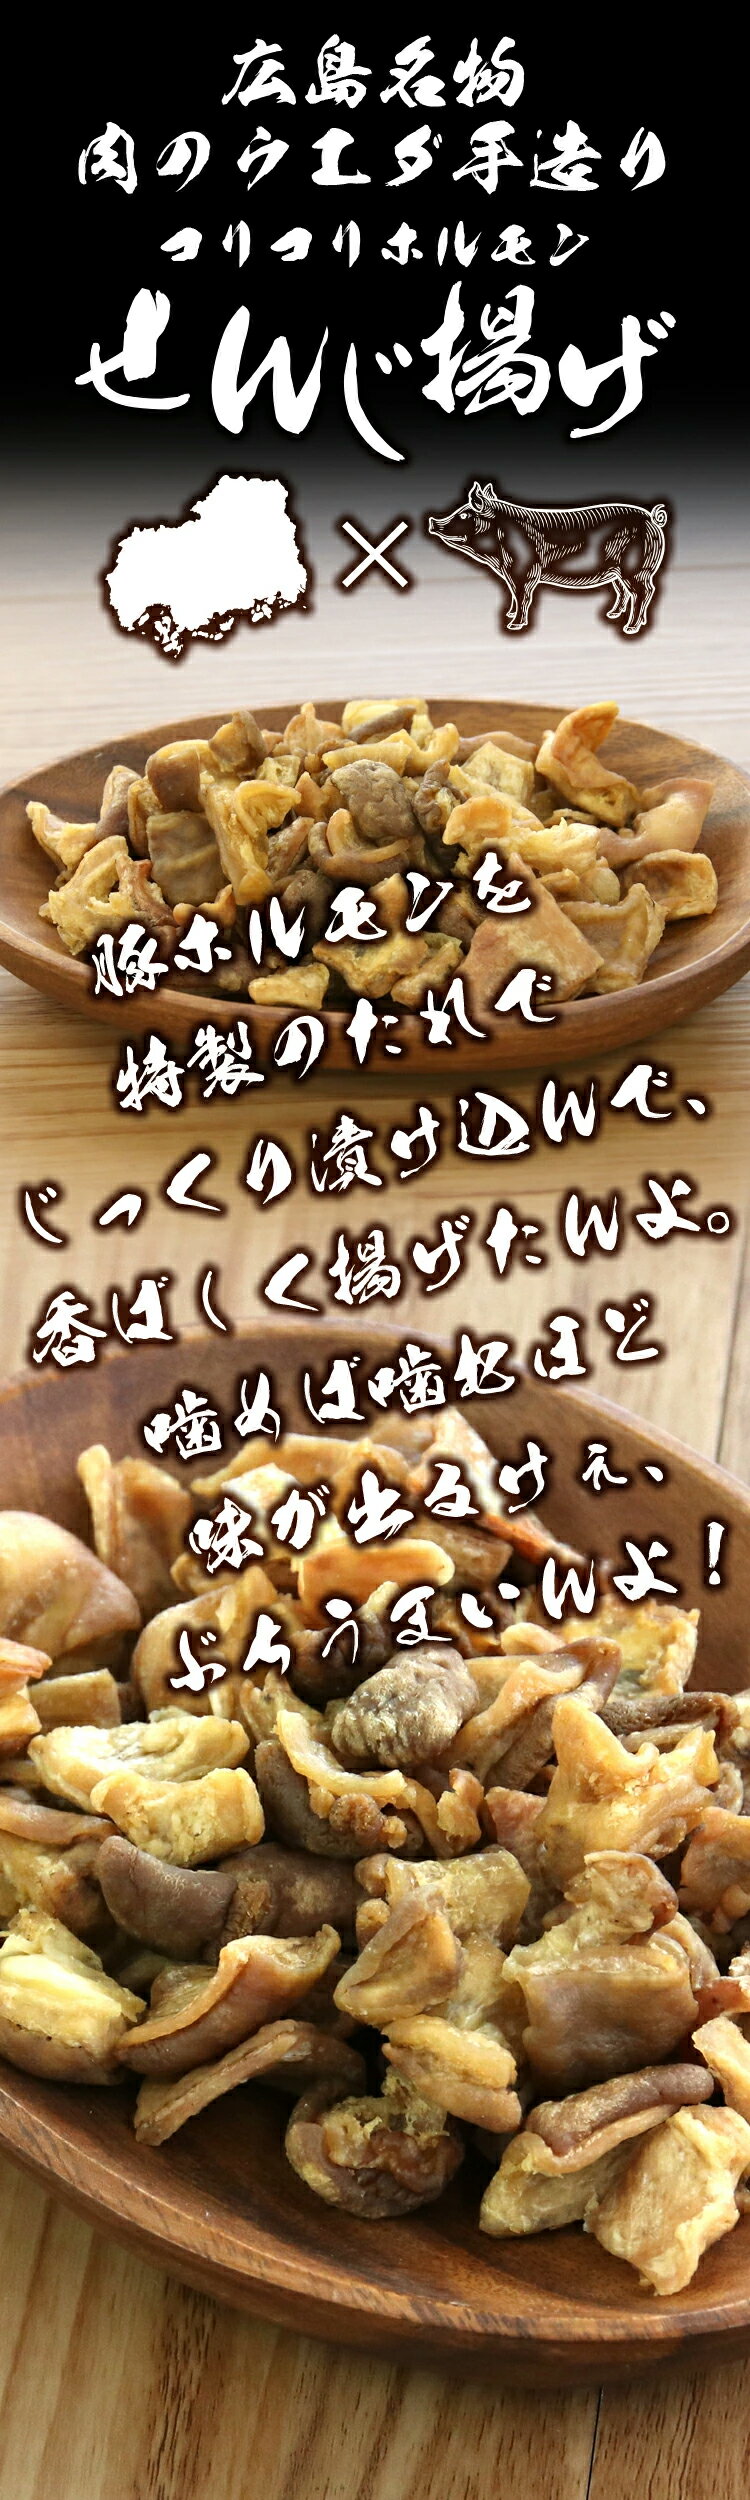 広島名物
肉のウエダ手造り
コリコリホルモン
せんじ揚げ
×
豚ホルモンを
特製のたれで
じっくり漬け込んで、
香ばしく揚げたんよ。
噛めば噛むほど
味が出るけぇ、
ぶちうまいんよ!